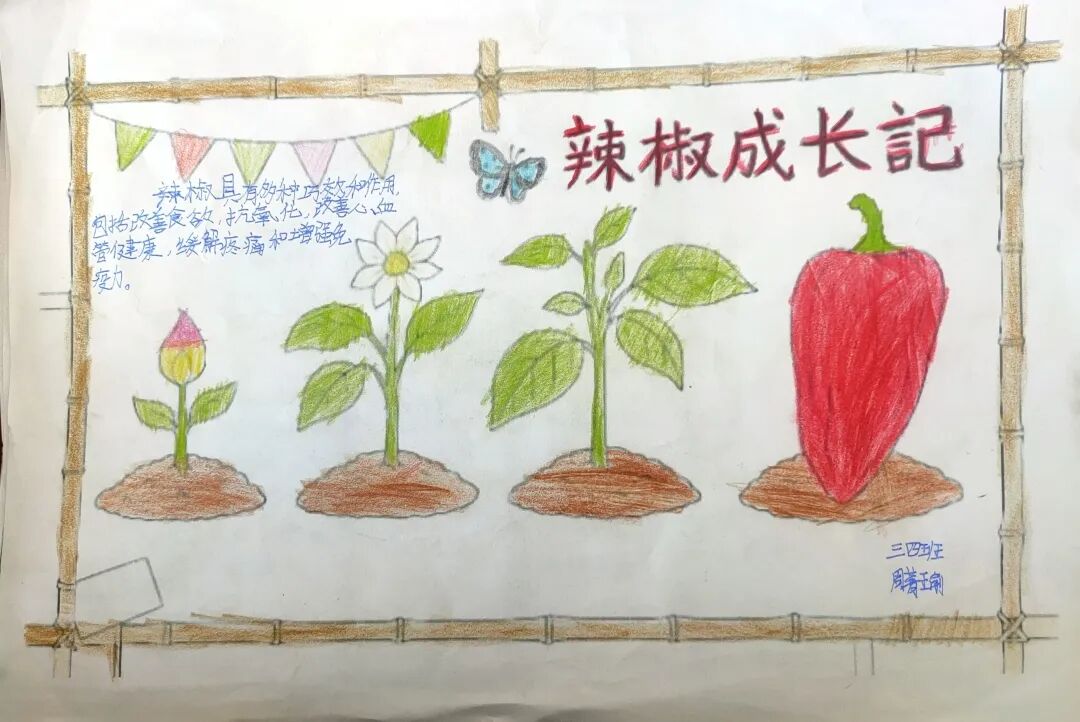 辣椒成长記
辣椒具有多种功效和作用,
包括改善食欲,抗氧化,改善心血
管健康,缓解疼痛和增强免
疫力。
三四班